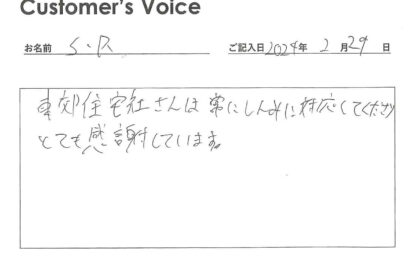 Customer's Voice
お名前 S・R ご記入日 2024年 2月29日
東郊住宅社さんは常にしんみに対応してくださり
とても感謝しています。